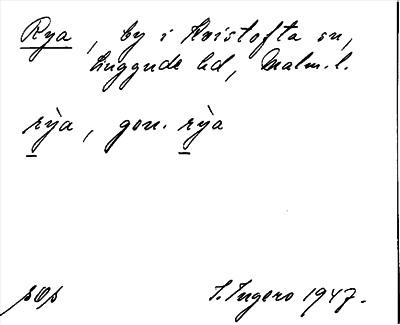 Rya, by i Kvistofta sn,
Luggude hd, Malm. l.
rỳa, gen. rỳa
pOp S. Ingers 1947.